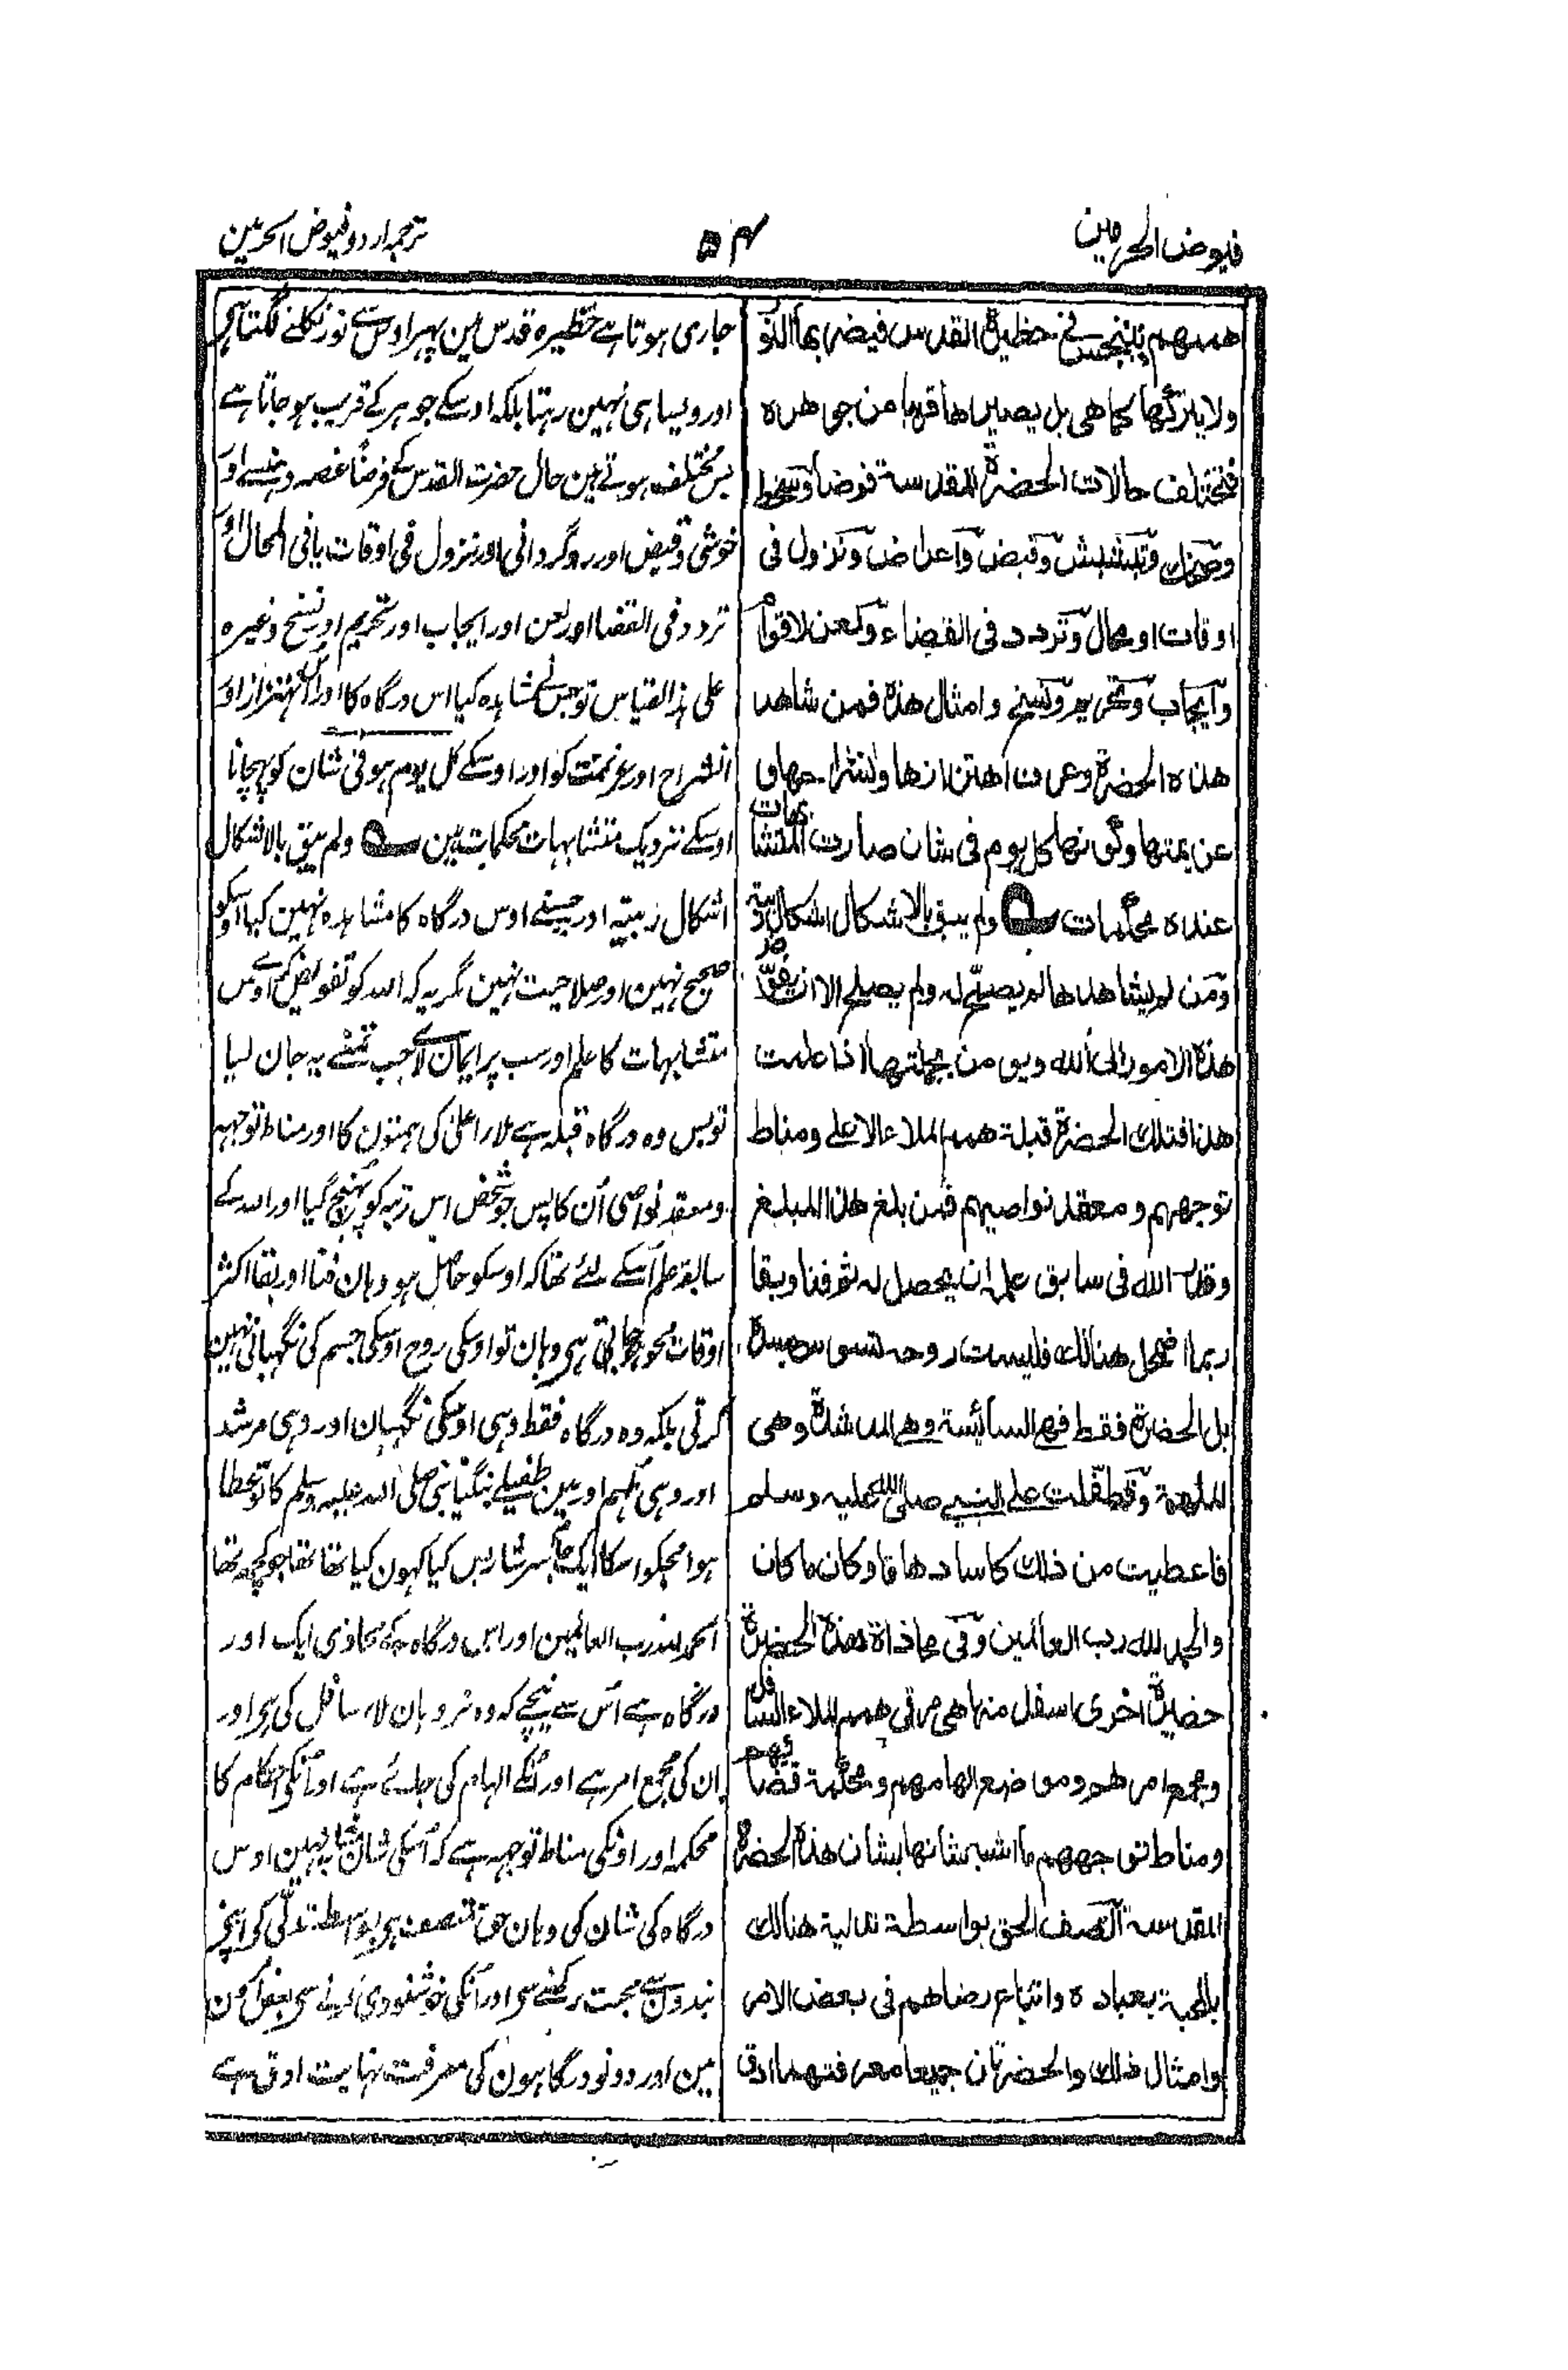 فیوض الحرمین
۵۴
ترجمہ اردو فیوض الحرمین
هممهم فی حظیرة القدس فیضربها النو
ولا یترکها کما هی بل یصیرها قربا من جوهره
فتختلف حالات الحضرة المقدسة فرضا وسخط
وضحک وتبشبش وقبض واعراض ونزول فی
اوقات اوحال وتردد فی القضاء وکعن لاقوام
وایجاب وتحریم ونسخ وامثال هذه فمن شاهد
هذه الحضرة وعرف اهتزازها وانشراحها و
عزیمتها وکونها کل یوم فی شان صارت المتشابهات
عنده محکمات ولم یبق بالاشکال اشکال ریبة
ومن لم یشاهدها لم یصح له ولم یصلح الا ان یفوّض
هذه الامور الی الله ویومن بجملتها اذا علمت
هذا فتلک الحضرة قبلة همم الملاء الاعلے ومناط
توجههم ومعقد نواصیهم فمن بلغ هذا المبلغ
وقدر الله فی سابق علمه ان یحصل له ثم فنا وبقا
ربما اضمحل هنالک فلیست روحه تسوس جسده
بل الحضرة فقط فهی السائسة وهی المرشدة وهی
الملهمة وقد تطفّلت علے النبی صلی الله علیه وسلم
فاعطیت من ذلک کاسا دهاقا وکان ما کان
والحمد لله رب العالمین وفی محاذاة هذه الحضرة
حضرة اخری اسفل منها هی مرقی همم الملاء السافل
ومجمع امرهم ومواضع الهامهم ومحکمة قضائهم
ومناط توجههم ما اشبه شانها بشان هذه الحضرة
المقدسة اتصف الحق بواسطة تدلیه هنالک
بالمحبة بعباده واتباع رضاهم فی بعض الامر
وامثال ذلک والحضرتان جمیعا معرفتهما ادق
جاری ہوتا ہے حظیرہ قدس مین پہر اوس سے نور نکلنے لگتا ہی
اور ویسا ہی نہین رہتا بلکہ اوسکے جوہر کے قریب ہو جاتا ہے
بس مختلف ہوتے ہین حال حضرت القدس کے فرضا غصہ و ہنسے اور
خوشی و قبض اور روگردانی اور نزول فی اوقات یا فی الحال اور
تردد فی القضا اور لعن اور ایجاب اور تحریم اور نسخ وغیرہ
علی ہذا القیاس تو جس نے مشاہدہ کیا اس درگاہ کا اور اس اہتزاز اور
انشراح اور عزیمت کو اور اوسکے کل یوم ہو فی شان کو پہچانا
اوسکے نزدیک متشابہات محکمات ہین ولم یبق بالاشکال
اشکال ریبتہ اور جسنے اوس درگاہ کا مشاہدہ نہین کیا اوسکو
صحیح نہین اور صلاحیت نہین مگر یہ کہ اللہ کو تفویض کرے اوس
متشابہات کا علم اور سب پر ایمان لائے جب تمنے یہ جان لیا
تو بس وہ درگاہ قبلہ ہے ملاء اعلیٰ کی ہمتون کا اور مناط توجہہ
و معقد نواصی اُن کا پس جو شخص اس رتبہ کو پہنچ گیا اور اللہ کے
سابقہ علم اسکے لئے تھا کہ اوسکو حاصل ہو وہان فنا اور بقا اکثر
اوقات محو ہو جاتی ہی وہان تو اوسکی روح اوسکی جسم کی نگہبانی نہین
کرتی بلکہ وہ درگاہ فقط وہی اوسکی نگہبان اور وہی مرشد
اور وہی ملہم اور مین طفیلے بنگیا نبی صلی اللہ علیہ وسلم کا تو عطا
ہوا مجکو اسکا ایک جام سرشار بس کیا کہون کیا تھا تھا جو کچھ تھا
الحمد للہ رب العالمین اور اس درگاہ کے محاذی ایک اور
درگاہ ہے اُس سے نیچے کہ وہ نردبان ملاء سافل کی ہی اور
ان کی مجمع امر ہے اور اُنکے الہام کی جائے ہے اور اُنکی احکام کا
محکمہ اور اونکی مناط توجہہ ہے کہ اُسکی شان مشابہ نہین اوس
درگاہ کی شان کی وہان حق متصف ہی بواسطہ تدلّی کی اپنے
بندون سے محبت رکھنے سے اور اُنکی خوشنودی لینے سے بعض امرون
مین اور دونو درگاہون کی معرفت نہایت ادق ہے